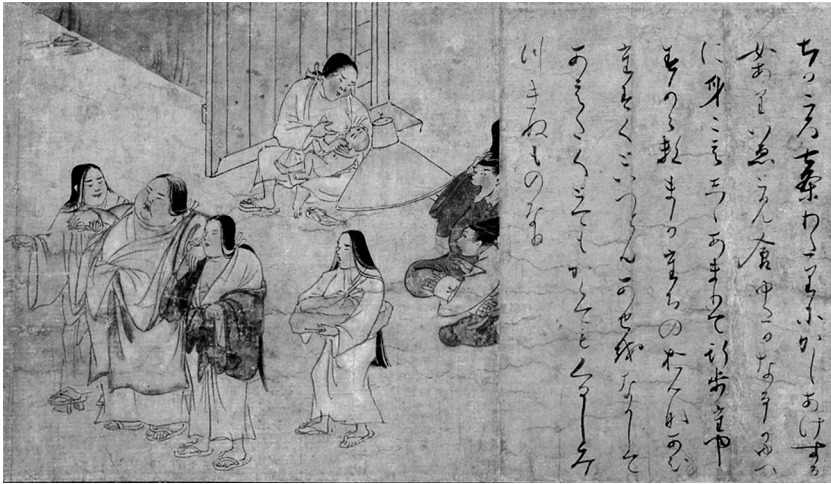 ちかころ七条わたりにかしあけする
女ありいゑとみ食ゆたかなるかゆへ
に身こえしゝあまりて行歩たや
すからすまかたちのおんなあひ
たすくといへともあせをなかして
あえきとてもかくてもくるしみ
つきぬものなり